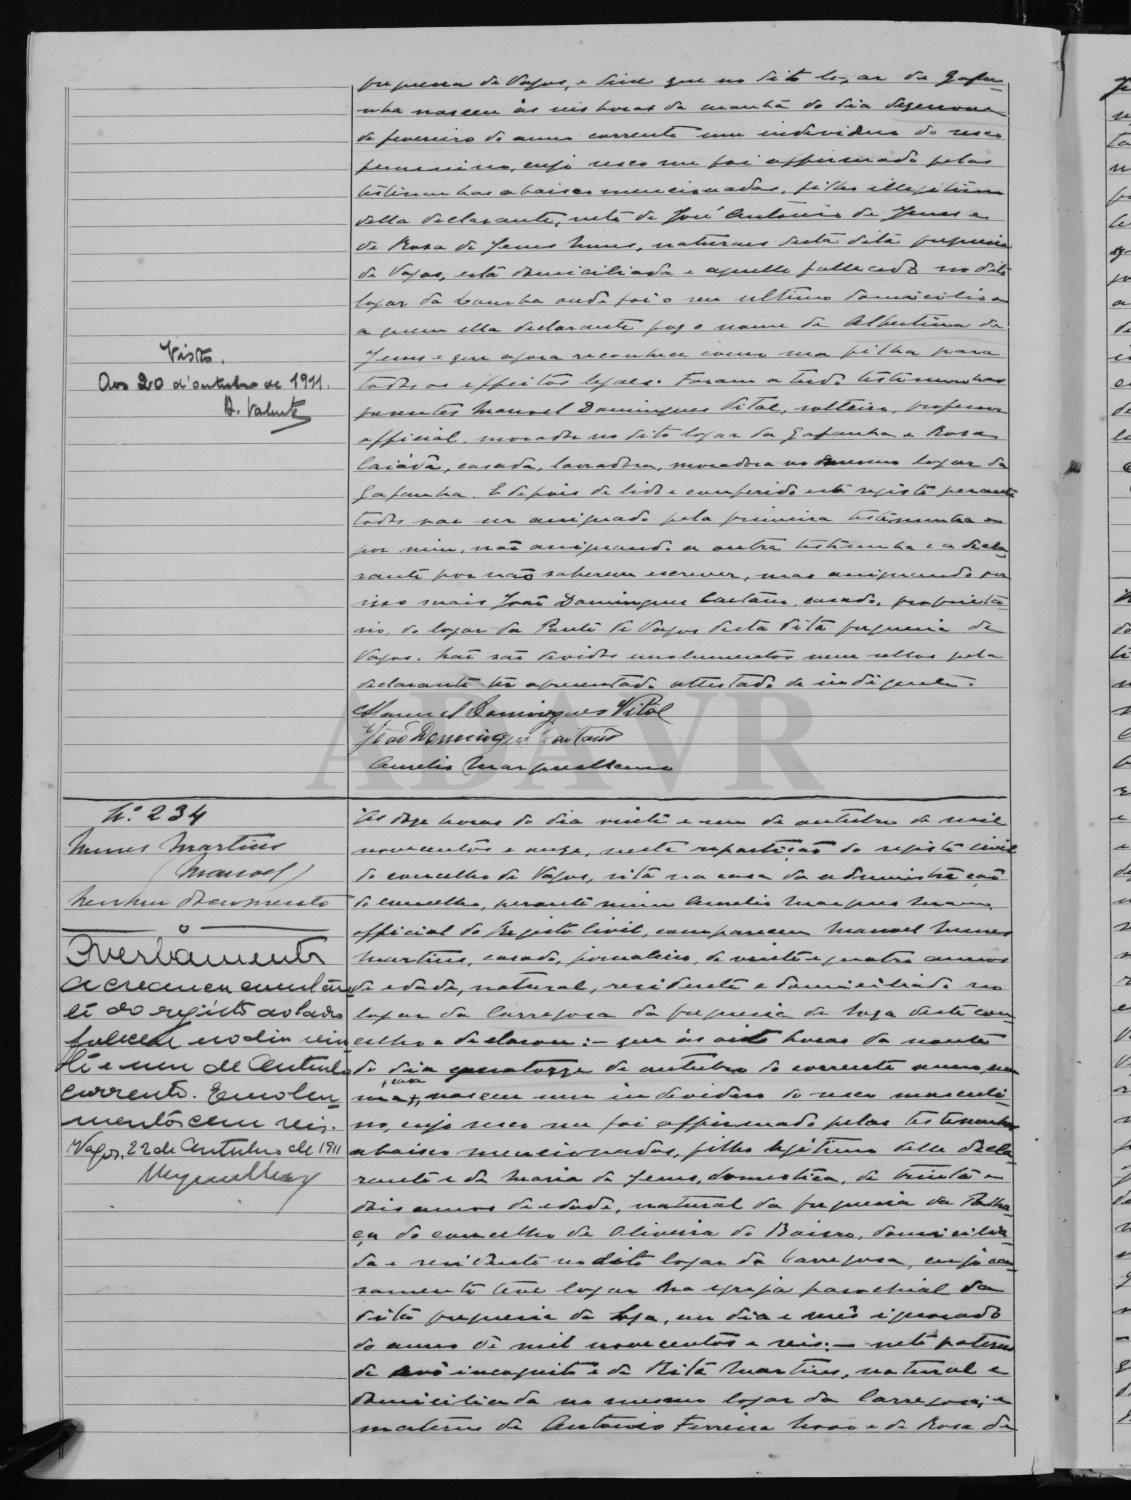 freguesia de Vagos, e disse que no dito logar da Gafa-
nha nasceu ás seis horas da manhã do dia dezenove
de fevereiro do anno corrente um individuo do sexo
femenino, cujo sexo me foi affirmado pelas
testimunhas abaixo mencionadas, filho illegitimo
della declarante, neto de José Antonio de Jesus e
de Rosa de Jesus Nunes, naturaes desta dita freguesia
de Vagos, esta domiciliada e aquelle fallecido no dito
logar da onde foi o seu ultimo domicilio e
a quem ella declarante poz o nome de Albertina de
Jesus e que agora reconhece como sua filha para
todos os effeitos legaes. Foram a tudo testimunhas
presentes Manuel Domingues Vital, solteiro, professor
official, morador no dito logar da Gafanha e Rosa
casada, lavradora, moradora no mesmo logar da
Gafanha. E depois de lido e conferido este registo perante
todos vae ser assignado pela primeira testimunha e
por mim, não assignando a outra testimunha e a decla-
rante por não saberem escrever, mas assignando por
isso mais João Domingues Caetano, casado, proprieta-
rio, do logar da Ponte de Vagos desta dita freguesia de
Vagos. Não são devidos emolumentos nem sellos pela
declarante ter apresentado attestado de indigente.
Manuel Domingues Vital
João Domingues Caetano
Aurelio Marques Mano
Visto.
Aos 20 d'outubro de 1911.
A. Valente
N.º 234
Nunes Martins
(Manoel)
Nenhum documento
Averbamento
A creança constan-
te do registo ao lado
faleceu no dia vin-
te e um de Outubro
corrente. Emolu-
mentos cem reis.
Vagos, 22 de Outubro de 1911
MarquesMano
Ás doze horas do dia vinte e um de outubro de mil
novecentos e onze, nesta repartição do registo civil
do concelho de Vagos, sita na casa da administração
do concelho, perante mim Aurelio Marques Mano,
official do Registo Civil, compareceu Manoel Nunes
Martins, casado, jornaleiro, de vinte e quatro annos
de edade, natural, residente e domiciliado no
logar da Carregosa da freguesia de Soza deste con-
celho e declarou: – que ás oito horas da noute
do dia quatorze de outubro do corrente anno, em
casa, nasceu um individuo do sexo masculi-
no, cujo sexo me foi affirmado pelas testimunhas
abaixo mencionadas, filho legitimo delle decla-
rante e de Maria de Jesus, domestica, de trinta e
dois annos de edade, natural da freguesia da Palha-
ça do concelho de Oliveira do Bairro, domicilia-
da e residente no dito logar da Carregosa, cujo ca-
samento teve logar na egreja parochial da
dita freguesia de Soza, em dia e mês ignorado
do anno de mil novecentos e seis: – neto paterno
de avô incognito e de Rita Martins, natural e
domiciliada no mesmo logar da Carregosa; e
materno de Antonio Ferreira Novo e de Rosa de
ADAVR